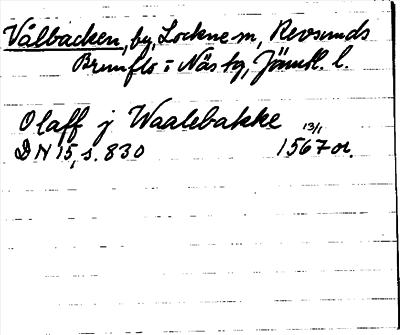 Vålbacken, by, Lockne sn, Revsunds
Brunflo o Näs tg, Jämtl. l.
Olaff j Waalebakke 13/1
DN 15, s. 830 1567 or.